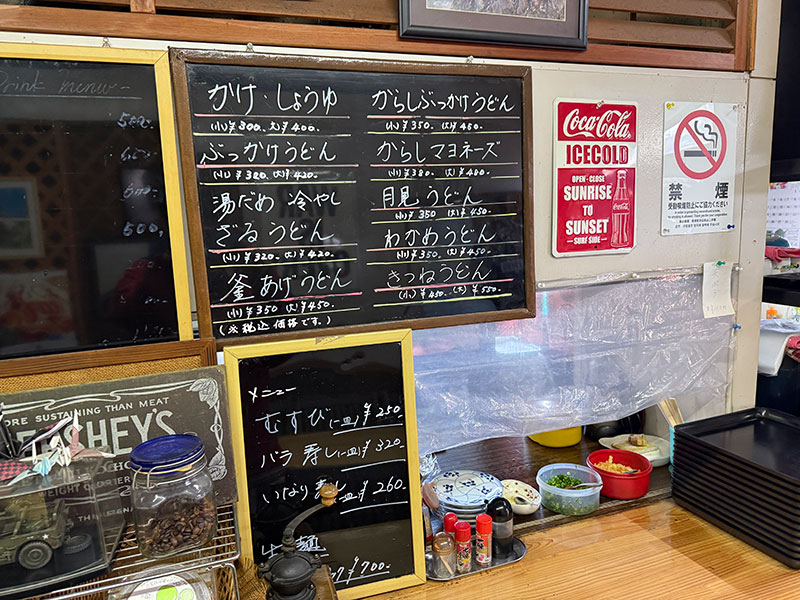 Drink menu
500.
500,
かけ・しょうゆ
(小)¥300. (大)¥400.
ぶっかけうどん
(小)¥320. (大)¥420.
湯だめ 冷やし
ざるうどん
(小)¥320. (大)¥420.
釜あげうどん
(小)¥350 (大)¥450.
(※税込価格です。)
からしぶっかけうどん
(小)¥350. (大)¥450.
からしマヨネーズ
(小)¥380. (大)¥480.
月見うどん
(小)¥350 (大)¥450.
わかめうどん
(小)¥350. (大)¥450.
きつねうどん
(小)¥450. (大)¥550.
Coca-Cola
ICECOLD
OPEN - CLOSE
SUNRISE
TO
SUNSET
SURF SIDE
禁煙
受動喫煙防止にご協力ください
メニュー
むすび(一皿)¥250
バラ寿し(一皿)¥320
いなり寿し(一皿)¥260
¥700.
ORE SUSTAINING THAN MEAT
SHEY'S